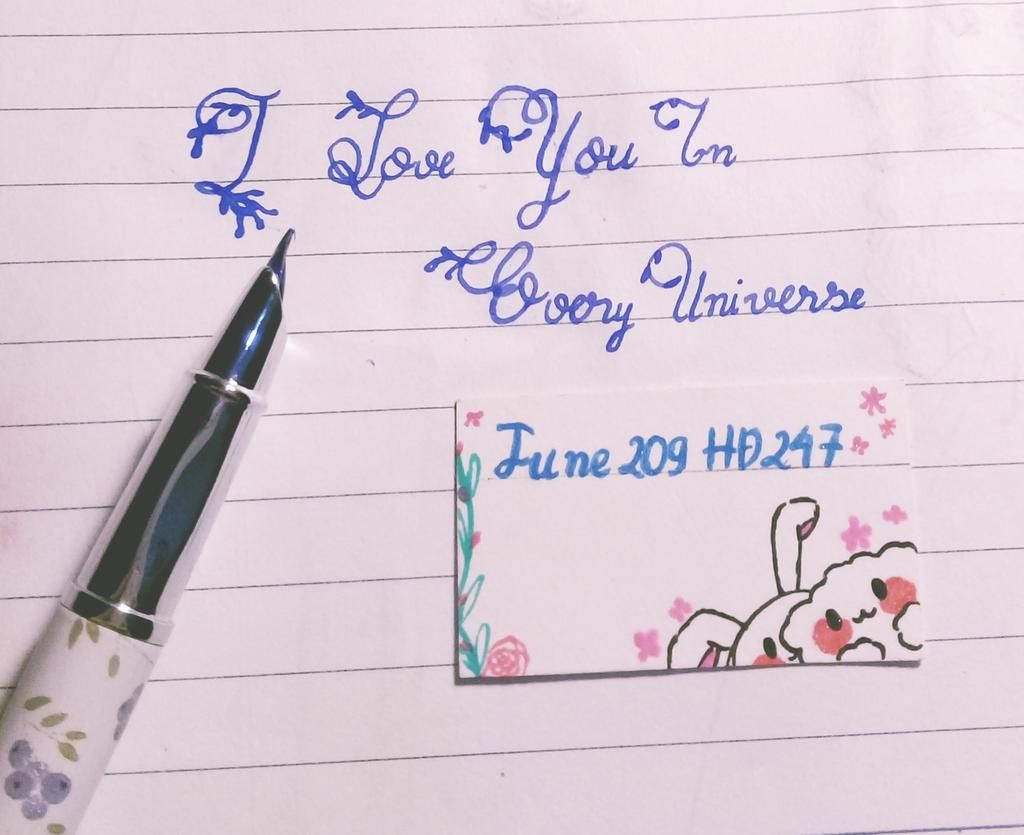 I Love You In
Every Universe
June 209 HD247